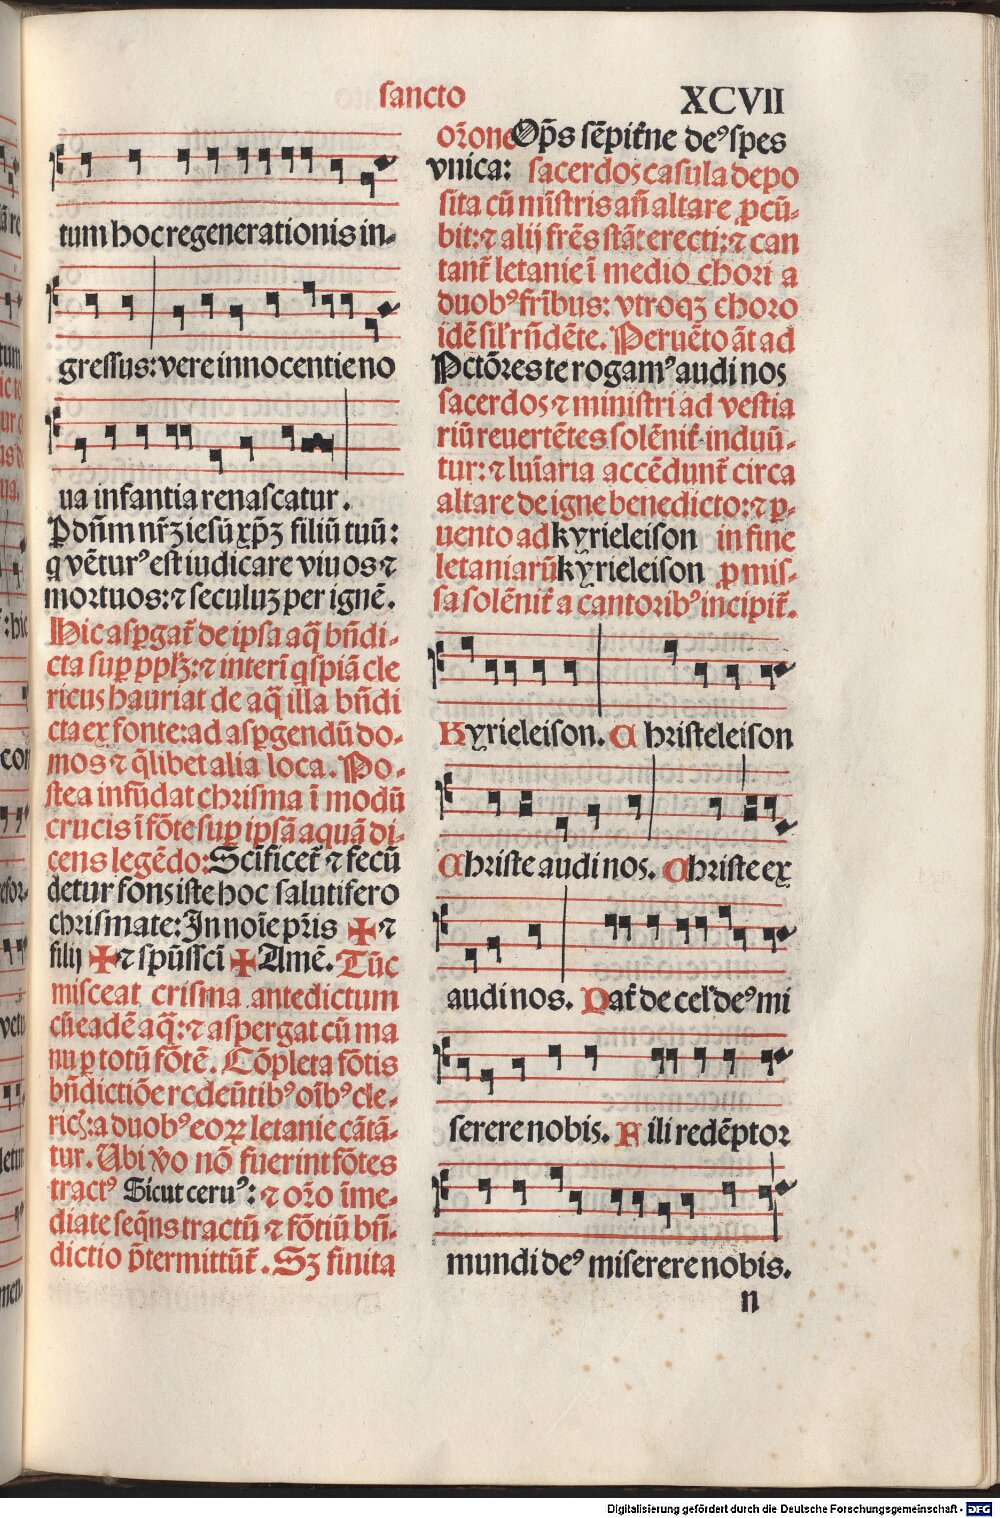 sancto
XCVII
tum hoc regenerationis in-
gressus: vere innocentie no
ua infantia renascatur.
Pdñm nr̃ꝫ iesũ xp̃ꝫ filiũ tuũ:
q vẽturꝰ est iudicare viuos ⁊
mortuos: ⁊ seculuꝫ per ignẽ.
Hic aspgat̃ de ipsa aq̃ bñdi-
cta sup pplꝫ: ⁊ interĩ qspiã cle
ricus hauriat de aq̃ illa bñdi
cta ex fonte: ad aspgendũ do-
mos ⁊ q̃libet alia loca. Po-
stea infũdat chrisma ĩ modũ
crucis ĩ fõte sup ipsã aquã di-
cens legẽdo: Scĩficet̃ ⁊ fecũ
detur fons iste hoc salutifero
chrismate: In noĩe pr̃is ✠ ⁊
filij ✠ ⁊ spũssc̃i ✠ Amẽ. Tũc
misceat crisma antedictum
cũ eadẽ aq̃: ⁊ aspergat cũ ma
nu ꝑ totũ fõtẽ. Cõpleta fõtis
bñdictiõe redeũtibꝰ oĩbꝰ cle-
ricꝭ: a duobꝰ eoꝝ letanie cãtã-
tur. Ubi ꝟo nõ fuerint fõtes
tractꝰ Sicut ceruꝰ: ⁊ or̃o ĩme-
diate seq̃ns tractũ ⁊ fõtiũ bñ-
dictio p̃termittũt̃. Sꝫ finita
or̃one Op̃s sẽpit̃ne deꝰ spes
vnica: sacerdos casula depo
sita cũ mĩstris añ altare ꝓcũ-
bit: ⁊ alij frẽs stãt erecti: ⁊ can
tant̃ letanie ĩ medio chori a
duobꝰ fr̃ibus: vtroqꝫ choro
idẽ sil̃r rñdẽte. Peruẽto ãt ad
Pctõres te rogamꝰ audi nos
sacerdos ⁊ ministri ad vestia
riũ reuertẽtes solẽnit̃ induũ-
tur: ⁊ luĩaria accẽdunt̃ circa
altare de igne benedicto: ⁊ ꝑ-
uento ad kyrieleison in fine
letaniarũ kyrieleison ꝓmis-
sa solẽnit̃ a cantoribꝰ incipit̃.
Kyrieleison. Christeleison
Christe audi nos. Christe ex
audi nos. Pat̃ de cel̃ deꝰ mi
serere nobis. Fili redẽptor
mundi deꝰ miserere nobis.
n
Digitalisierung gefördert durch die Deutsche Forschungsgemeinschaft - DFG